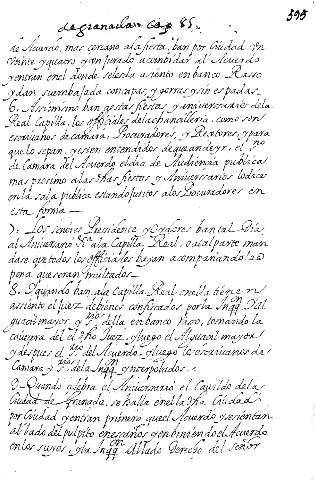 de granada. Cap. 85.
395
de Acuerdo, mas cercano ala fiesta, ban por Ciudad Un
Veinte y quatro, y un Jurado a combidar al Acuerdo
y entran en el donde seles da asiento en banco Raso
y dan su embajada con capas, y gorras y sin espadas.
6. Assimismo ban a estas fiestas y aniversarios dela
Real Capilla, los officiales dela chancilleria, como son
escrivanos de camara, Procuradores, y Receptores, y para
que lo sepan, y esten entendidos de que an de yr. el ss.no
de Camara del Acuerdo el dia de Audiencia publica
mas proximo a las dhas fiestas y Aniversarios lo dice
en la sala publica estando juntos a los Procuradores en
esta forma —
7. Los señores Presidente y Oydores ban tal dia
al Aniversario &c. a la Capilla Real, o a tal parte man
dase que todos los officiales bayan acompañando
pena que seran multados —
8. Y quando ban a la Capilla Real en ella tiene su
assiento el juez de bienes confiscados por la Inqq.on Y el Al
guacil mayor y ss.no della en banco Raso, tomando la
cavecera del el dho Juez, y luego el Alguacil mayor
y despues el ss.no del Acuerdo, y luego los escrivanos de
Camara y ss.no dela Inqq.on yncorpolados.
9. Quando celebra el Aniversario el Cavildo dela
Ciudad de Granada, se halla en el la dha Ciudad
por Ciudad y entran primero que el Acuerdo y se sientan
al lado del pulpito en escaños y en biniendo el Acuerdo
en los suyos, y la Inqq.on Al lado Derecho del Señor